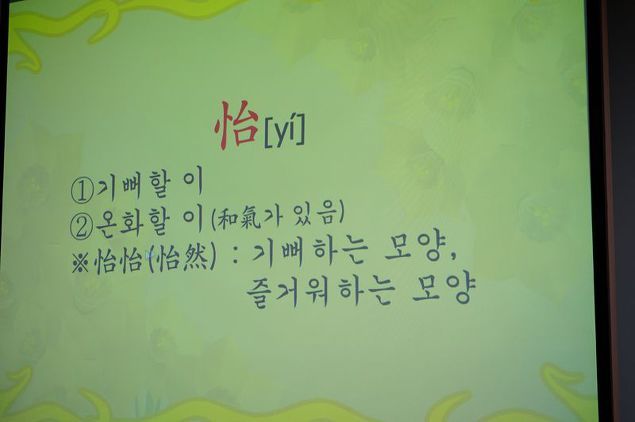 怡[yí]
①기뻐할 이
②온화할 이(和氣가 있음)
※怡怡(怡然) : 기뻐하는 모양,
즐거워하는 모양